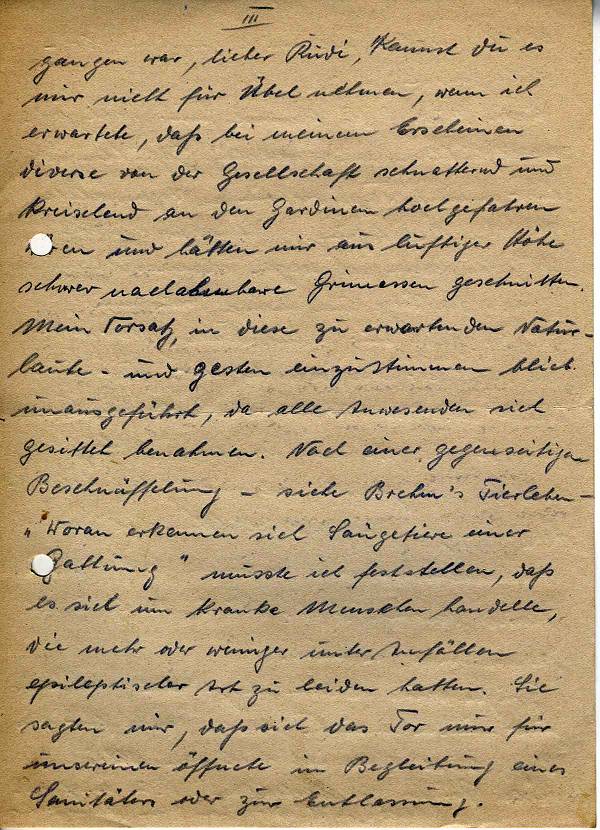 III
gangen war, lieber Rudi, kannst du es
mir nicht für Übel nehmen, wenn ich
erwartete, daß bei meinem Erscheinen
diverse von der Gesellschaft schnatternd und
kreiselnd an den Gardinen hochgefahren
und hätten mir aus luftiger Höhe
schwer nachahmbare Grimassen geschnitten.
Mein Vorsatz, in diese zu erwartenden Natur-
laute - und gesten einzustimmen blieb
unausgeführt, da alle Anwesenden sich
gesittet benahmen. Nach einer gegenseitigen
Beschnüffelung - siehe Brehm's Tierleben -
"Woran erkennen sich Säugetiere einer
Gattung" musste ich feststellen, daß
es sich um kranke Menschen handelte,
die mehr oder weniger unter Anfällen
epileptischer Art zu leiden hatten. Sie
sagten mir, daß sich das Tor nur für
unsereinen öffnete in Begleitung eines
Sanitäters oder zur Entlassung.